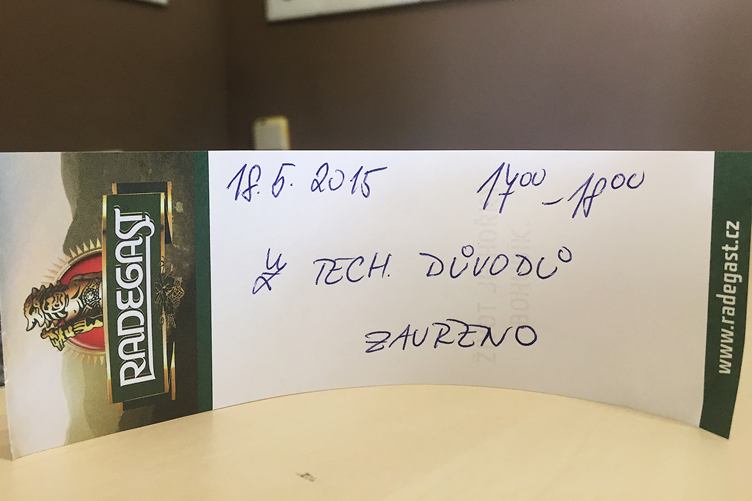 RADEGAST
18.5.2015 17⁰⁰ - 18⁰⁰
Z TECH. DŮVODŮ
ZAVŘENO
www.radegast.cz